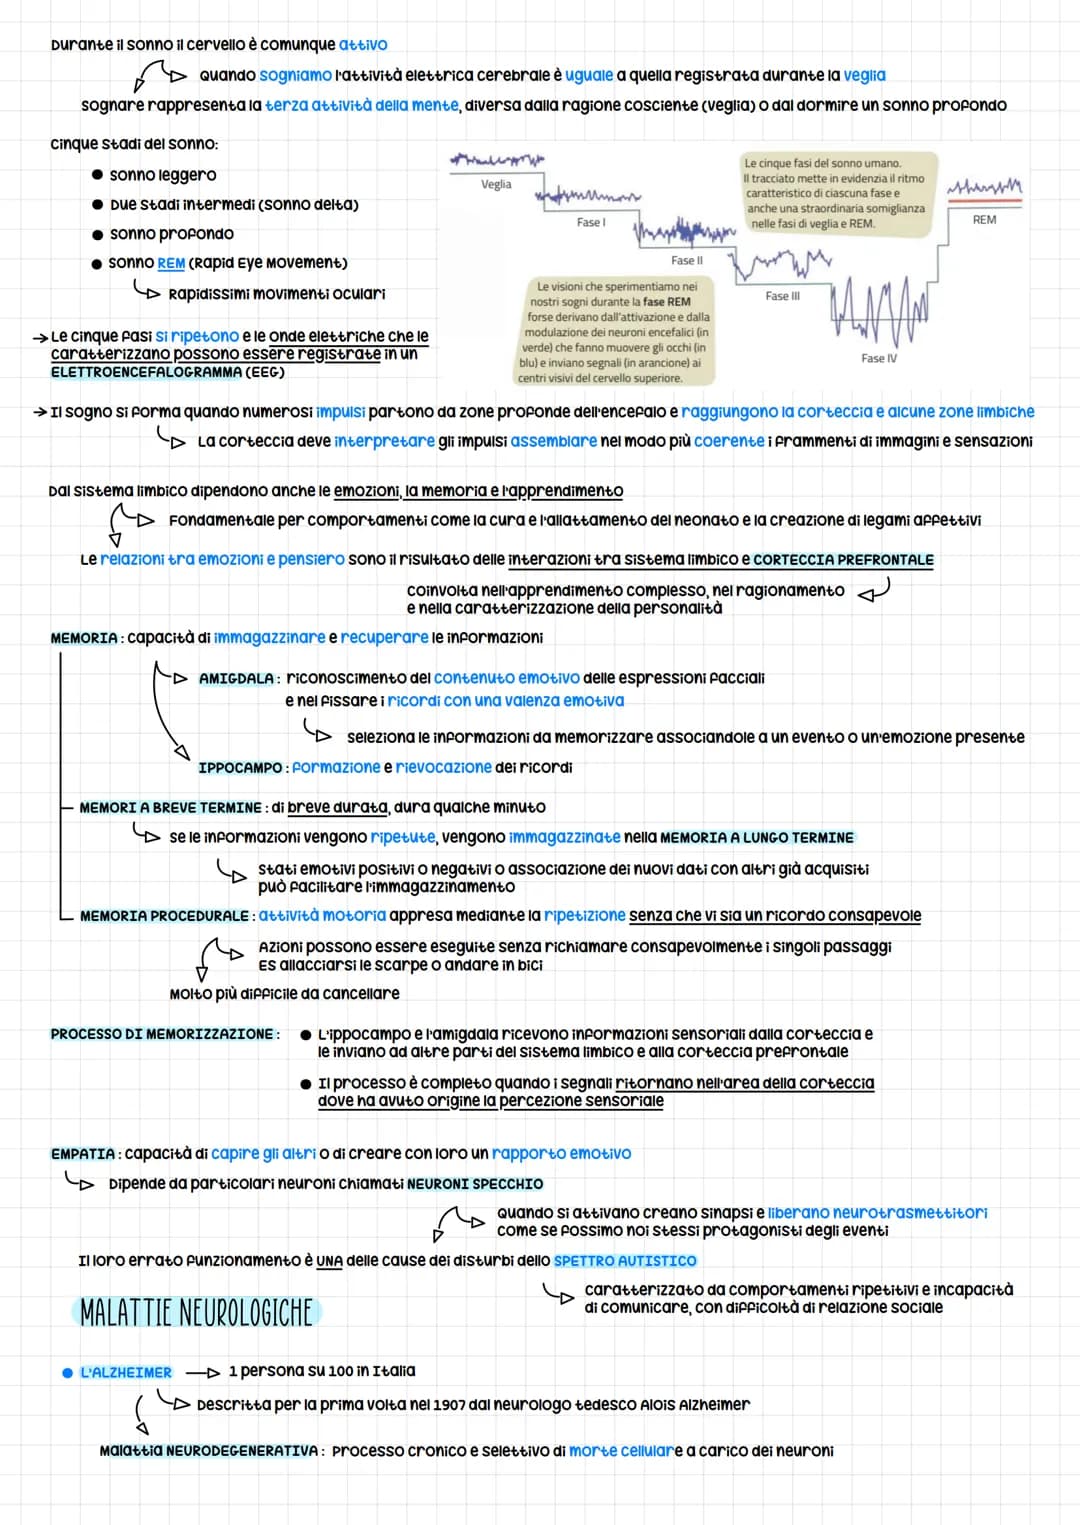 Durante il sonno il cervello è comunque attivo
Quando sogniamo l'attività elettrica cerebrale è uguale a quella registrata durante la veglia
sognare rappresenta la terza attività della mente, diversa dalla ragione cosciente (veglia) o dal dormire un sonno profondo
Cinque stadi del sonno:
● sonno leggero
● Due stadi intermedi (sonno delta)
● sonno profondo
● sonno REM (Rapid Eye Movement)
Rapidissimi movimenti oculari
Veglia
Fase I
Fase II
Fase III
Fase IV
REM
Le cinque fasi del sonno umano.
Il tracciato mette in evidenza il ritmo
caratteristico di ciascuna fase e
anche una straordinaria somiglianza
nelle fasi di veglia e REM.
Le visioni che sperimentiamo nei
nostri sogni durante la fase REM
forse derivano dall'attivazione e dalla
modulazione dei neuroni encefalici (in
verde) che fanno muovere gli occhi (in
blu) e inviano segnali (in arancione) ai
centri visivi del cervello superiore.
→ Le cinque fasi si ripetono e le onde elettriche che le
caratterizzano possono essere registrate in un
ELETTROENCEFALOGRAMMA (EEG)
→ Il sogno si forma quando numerosi impulsi partono da zone profonde dell'encefalo e raggiungono la corteccia e alcune zone limbiche
La corteccia deve interpretare gli impulsi assemblare nel modo più coerente i frammenti di immagini e sensazioni
Dal sistema limbico dipendono anche le emozioni, la memoria e l'apprendimento
Fondamentale per comportamenti come la cura e l'allattamento del neonato e la creazione di legami affettivi
Le relazioni tra emozioni e pensiero sono il risultato delle interazioni tra sistema limbico e CORTECCIA PREFRONTALE
coinvolta nell'apprendimento complesso, nel ragionamento
e nella caratterizzazione della personalità
MEMORIA: capacità di immagazzinare e recuperare le informazioni
AMIGDALA: riconoscimento del contenuto emotivo delle espressioni facciali
e nel fissare i ricordi con una valenza emotiva
seleziona le informazioni da memorizzare associandole a un evento o un'emozione presente
IPPOCAMPO: formazione e rievocazione dei ricordi
MEMORI A BREVE TERMINE: di breve durata, dura qualche minuto
se le informazioni vengono ripetute, vengono immagazzinate nella MEMORIA A LUNGO TERMINE
Stati emotivi positivi o negativi o associazione dei nuovi dati con altri già acquisiti
può facilitare l'immagazzinamento
MEMORIA PROCEDURALE: attività motoria appresa mediante la ripetizione senza che vi sia un ricordo consapevole
Azioni possono essere eseguite senza richiamare consapevolmente i singoli passaggi
ES allacciarsi le scarpe o andare in bici
Molto più difficile da cancellare
PROCESSO DI MEMORIZZAZIONE: ● L'ippocampo e l'amigdala ricevono informazioni sensoriali dalla corteccia e
le inviano ad altre parti del sistema limbico e alla corteccia prefrontale
● Il processo è completo quando i segnali ritornano nell'area della corteccia
dove ha avuto origine la percezione sensoriale
EMPATIA: capacità di capire gli altri o di creare con loro un rapporto emotivo
Dipende da particolari neuroni chiamati NEURONI SPECCHIO
Quando si attivano creano sinapsi e liberano neurotrasmettitori
come se fossimo noi stessi protagonisti degli eventi
Il loro errato funzionamento è UNA delle cause dei disturbi dello SPETTRO AUTISTICO
caratterizzato da comportamenti ripetitivi e incapacità
di comunicare, con difficoltà di relazione sociale
MALATTIE NEUROLOGICHE
● L'ALZHEIMER → 1 persona su 100 in Italia
Descritta per la prima volta nel 1907 dal neurologo tedesco Alois Alzheimer
Malattia NEURODEGENERATIVA: Processo cronico e selettivo di morte cellulare a carico dei neuroni